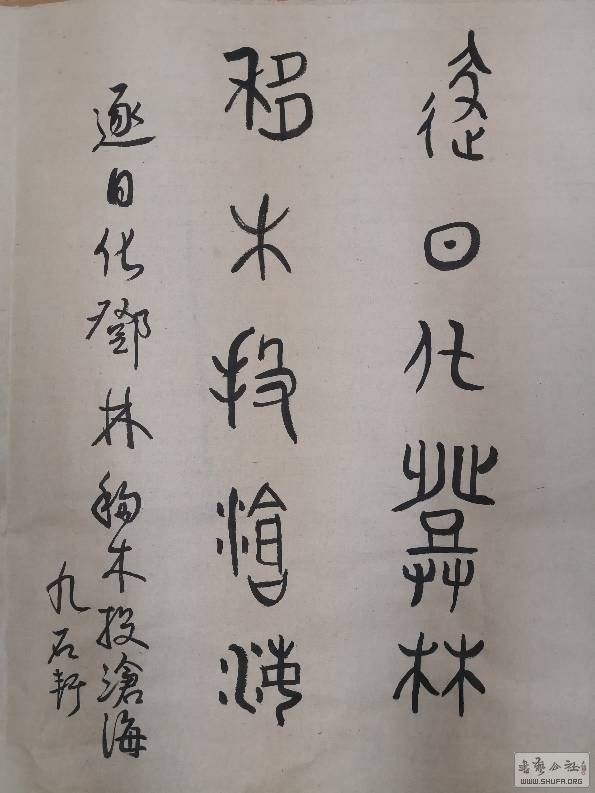 逐日化鄧林
移木投滄海
逐日化鄧林移木投滄海
九石軒
書法公社
WWW.SHUFA.ORG